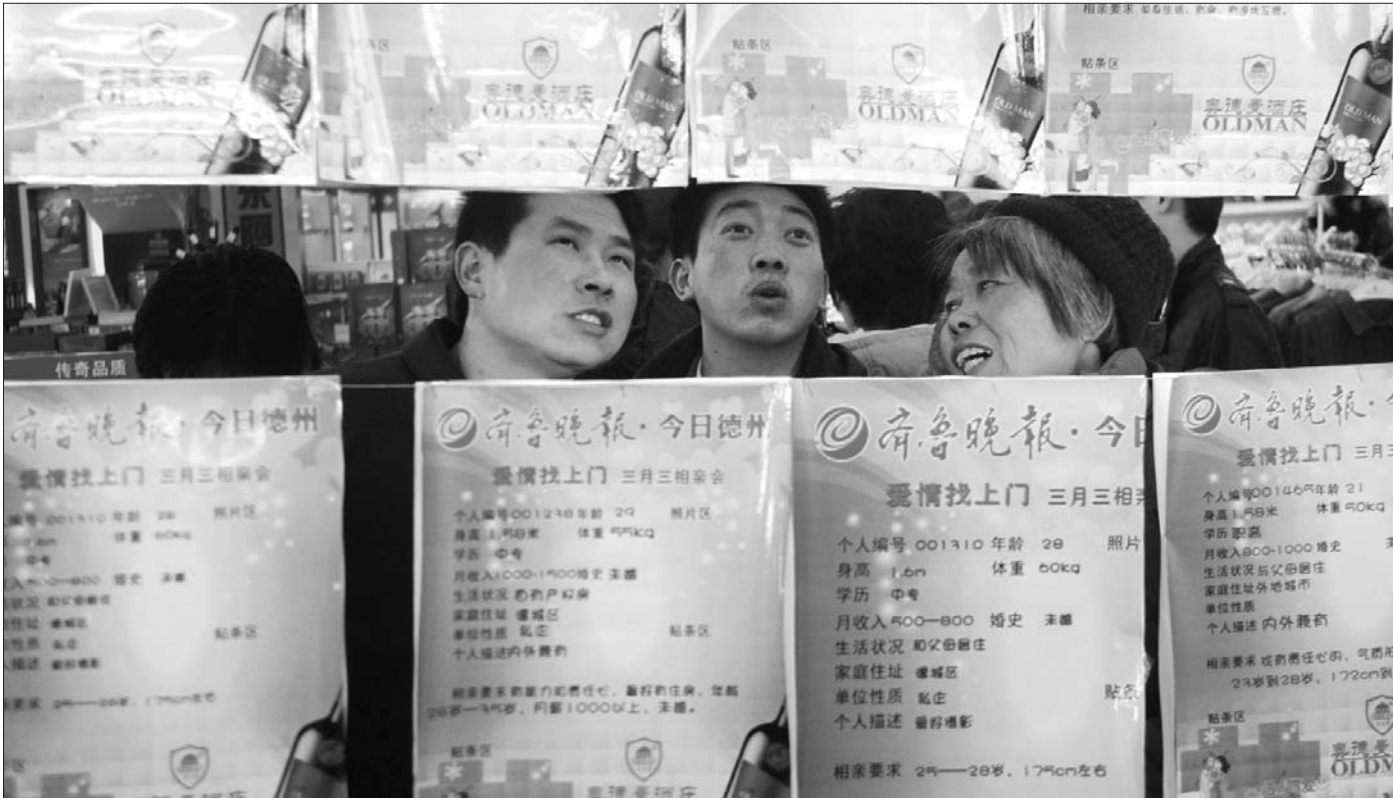 OLDMAN
贴条区
奥德曼酒庄
OLDMAN
OLD MAN
贴条区
奥德曼酒庄
OLDMAN
OLDMAN
贴条区
奥德曼酒庄
OLDMAN
OLDMAN
传奇品质
齐鲁晚报·今日德州
爱情找上门 三月三相亲会
编号 001310 年龄 28 照片区
1.6m 体重 60kg
中专
收入500—800 婚史 未婚
状况 和父母居住
住址
性质 私企
贴条区
人描述 爱好摄影
25——28岁，175cm左右
齐鲁晚报·今日德州
爱情找上门 三月三相亲会
个人编号001238年龄 29 照片区
身高 1.58米 体重 55kg
学历 中专
月收入1000-1500婚史 未婚
生活状况
家庭住址
单位性质 私企 贴条区
个人描述内外兼有
相亲要求 有能力和责任心，最好有住房，年龄
28岁—35岁，月薪1000以上，未婚。
贴条区
齐鲁晚报·今日
爱情找上门 三月三相亲
个人编号 001310 年龄 28 照片
身高 1.6m 体重 60kg
学历 中专
月收入500—800 婚史 未婚
生活状况 和父母居住
家庭住址
单位性质 私企
贴条
个人描述 爱好摄影
相亲要求 25——28岁，175cm左右
齐鲁晚报·
爱情找上门 三月三
个人编号001465年龄 21
身高 1.58米 体重 50kg
学历 职高
月收入800-1000 婚史
生活状况 与父母居住
家庭住址外地城市
单位性质
个人描述 内外兼有
相亲要求 责任心的，气质
23岁到28岁，172cm到
贴条区
奥德曼
OLDM